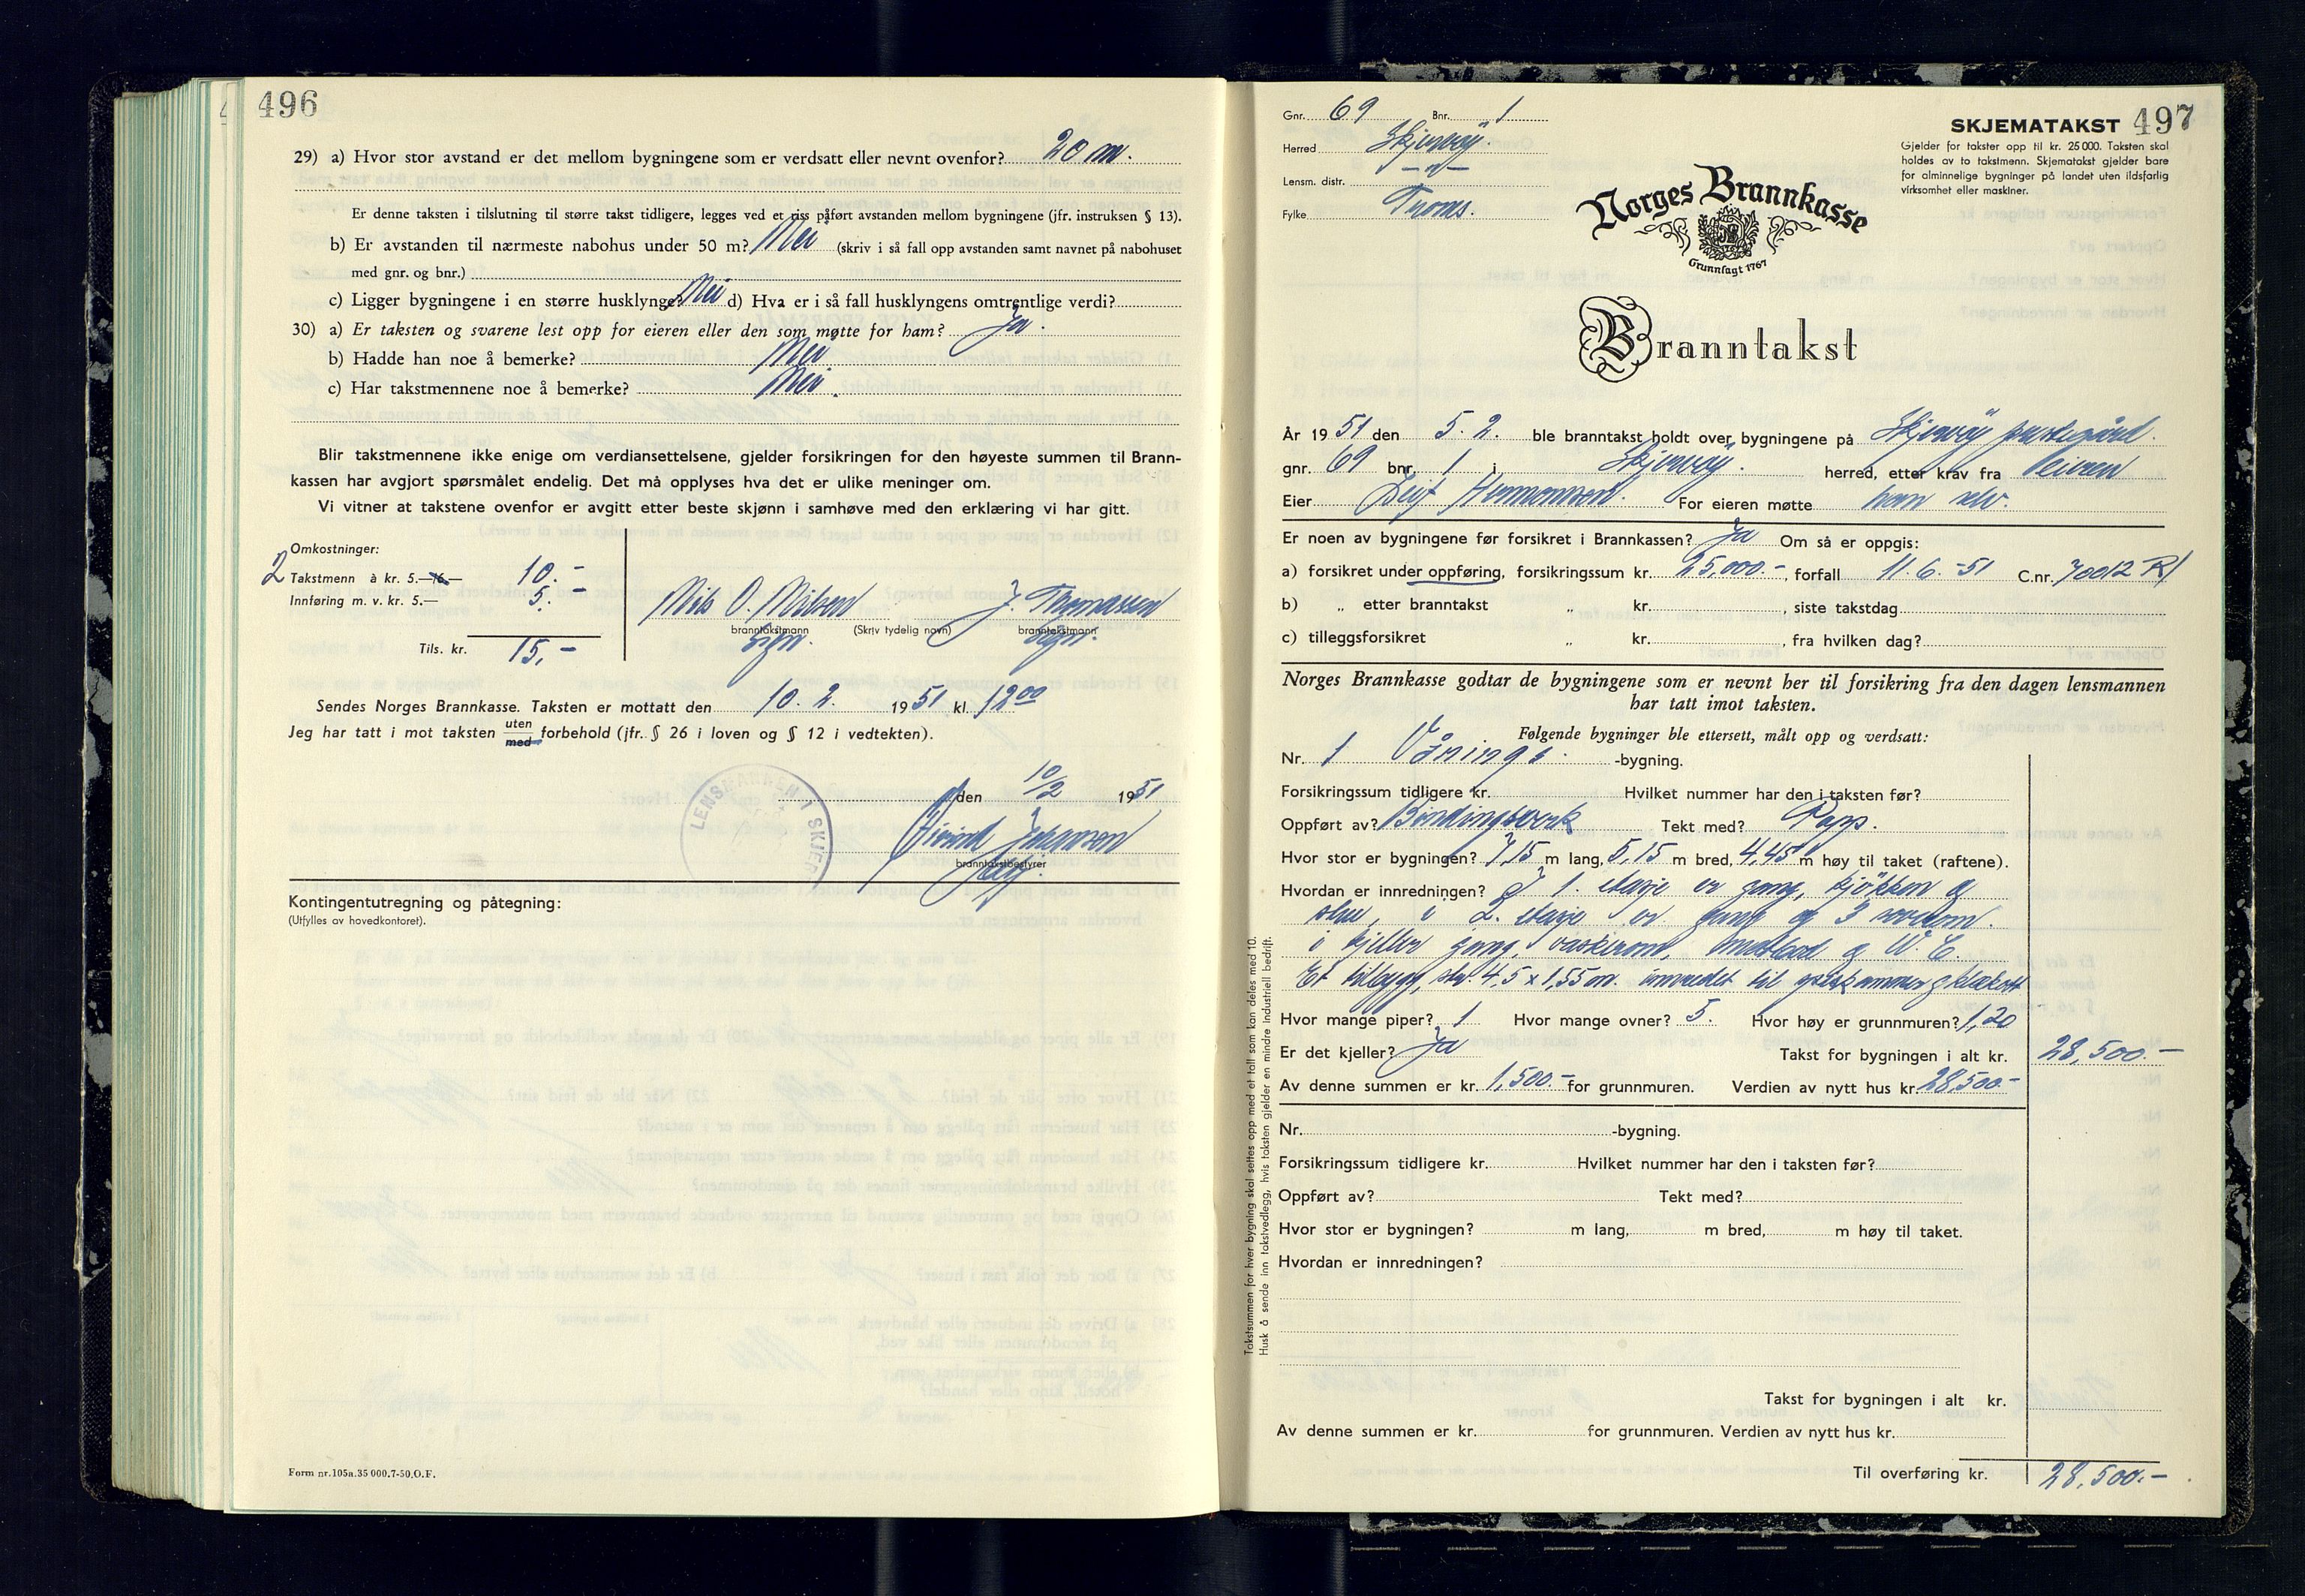 496
29) a) Hvor stor avstand er det mellom bygningene som er verdsatt eller nevnt ovenfor? 20 m.
Er denne taksten i tilslutning til større takst tidligere, legges ved et riss påført avstanden mellom bygningene (jfr. instruksen § 13).
b) Er avstanden til nærmeste nabohus under 50 m? Nei (skriv i så fall opp avstanden samt navnet på nabohuset
med gnr. og bnr.)
c) Ligger bygningene i en større husklynge? Nei d) Hva er i så fall husklyngens omtrentlige verdi?
30) a) Er taksten og svarene lest opp for eieren eller den som møtte for ham? Ja.
b) Hadde han noe å bemerke? Nei
c) Har takstmennene noe å bemerke? Nei.
Blir takstmennene ikke enige om verdiansettelsene, gjelder forsikringen for den høyeste summen til Brann-
kassen har avgjort spørsmålet endelig. Det må opplyses hva det er ulike meninger om.
Vi vitner at takstene ovenfor er avgitt etter beste skjønn i samhøve med den erklæring vi har gitt.
Omkostninger:
2 Takstmenn à kr. 5.— 10.-
Innføring m. v. kr. 5.— 5.-
Tils. kr. 15,-
Nils O. Nilsen J. Thomassen
branntakstmann (Skriv tydelig navn) branntakstmann
sign. sign.
Sendes Norges Brannkasse. Taksten er mottatt den 10. 2. 1951 kl. 12 00
Jeg har tatt i mot taksten uten med forbehold (jfr. § 26 i loven og § 12 i vedtekten).
LENSMANNEN I SKJER
den 10/2 1951
Eivind Johansen
branntakstbestyrer
Kontingentutregning og påtegning:
(Utfylles av hovedkontoret).
Form nr. 105a. 35 000. 7-50. O. F.
497
Gnr. 69 Bnr. 1
Herred Skjervøy.
Lensm. distr. —"—
Fylke Troms.
SKJEMATAKST
Gjelder for takster opp til kr. 25 000. Taksten skal
holdes av to takstmenn. Skjematakst gjelder bare
for alminnelige bygninger på landet uten ildsfarlig
virksomhet eller maskiner.
Norges Brannkasse
Grunnlagt 1767
Branntakst
År 1951 den 5. 2. ble branntakst holdt over bygningene på Skjervøy prestegård.
gnr. 69 bnr. 1 i Skjervøy. herred, etter krav fra eieren
Eier Leif Hermansen. For eieren møtte han selv.
Er noen av bygningene før forsikret i Brannkassen? Ja Om så er oppgis:
a) forsikret under oppføring, forsikringssum kr. 25,000.-, forfall 11. 6. -51 C.nr. 70012 R/
b) „ etter branntakst „ kr. , siste takstdag
c) tilleggsforsikret „ kr. , fra hvilken dag?
Norges Brannkasse godtar de bygningene som er nevnt her til forsikring fra den dagen lensmannen
har tatt imot taksten.
Følgende bygninger ble ettersett, målt opp og verdsatt:
Nr. 1 Vånings -bygning.
Forsikringssum tidligere kr. Hvilket nummer har den i taksten før?
Oppført av? Bindingsverk Tekt med? Papp.
Hvor stor er bygningen? 7,15 m lang, 5,15 m bred, 4,45 m høy til taket (raftene).
Hvordan er innredningen? I 1. etasje er gang, kjøkken og
stue, i 2. etasje er gang og 3 soverom.
i kjeller gang, vaskerom, matbod og W. C.
Et tilbygg, str. 4,5 x 1,55 m. innredet til spiskammer og
Hvor mange piper? 1 Hvor mange ovner? 5. Hvor høy er grunnmuren? 1,20
Er det kjeller? Ja Takst for bygningen i alt kr. 28,500.-
Av denne summen er kr. 1,500.- for grunnmuren. Verdien av nytt hus kr. 28,500.-
Nr. -bygning.
Forsikringssum tidligere kr. Hvilket nummer har den i taksten før?
Oppført av? Tekt med?
Hvor stor er bygningen? m lang, m bred, m høy til taket.
Hvordan er innredningen?
Takst for bygningen i alt kr.
Av denne summen er kr. for grunnmuren. Verdien av nytt hus kr.
Til overføring kr. 28,500.-
Takstsummen for hver bygning skal settes opp med et tall som kan deles med 10.
Husk å sende inn takstvedlegg, hvis taksten gjelder en mindre industriell bedrift.